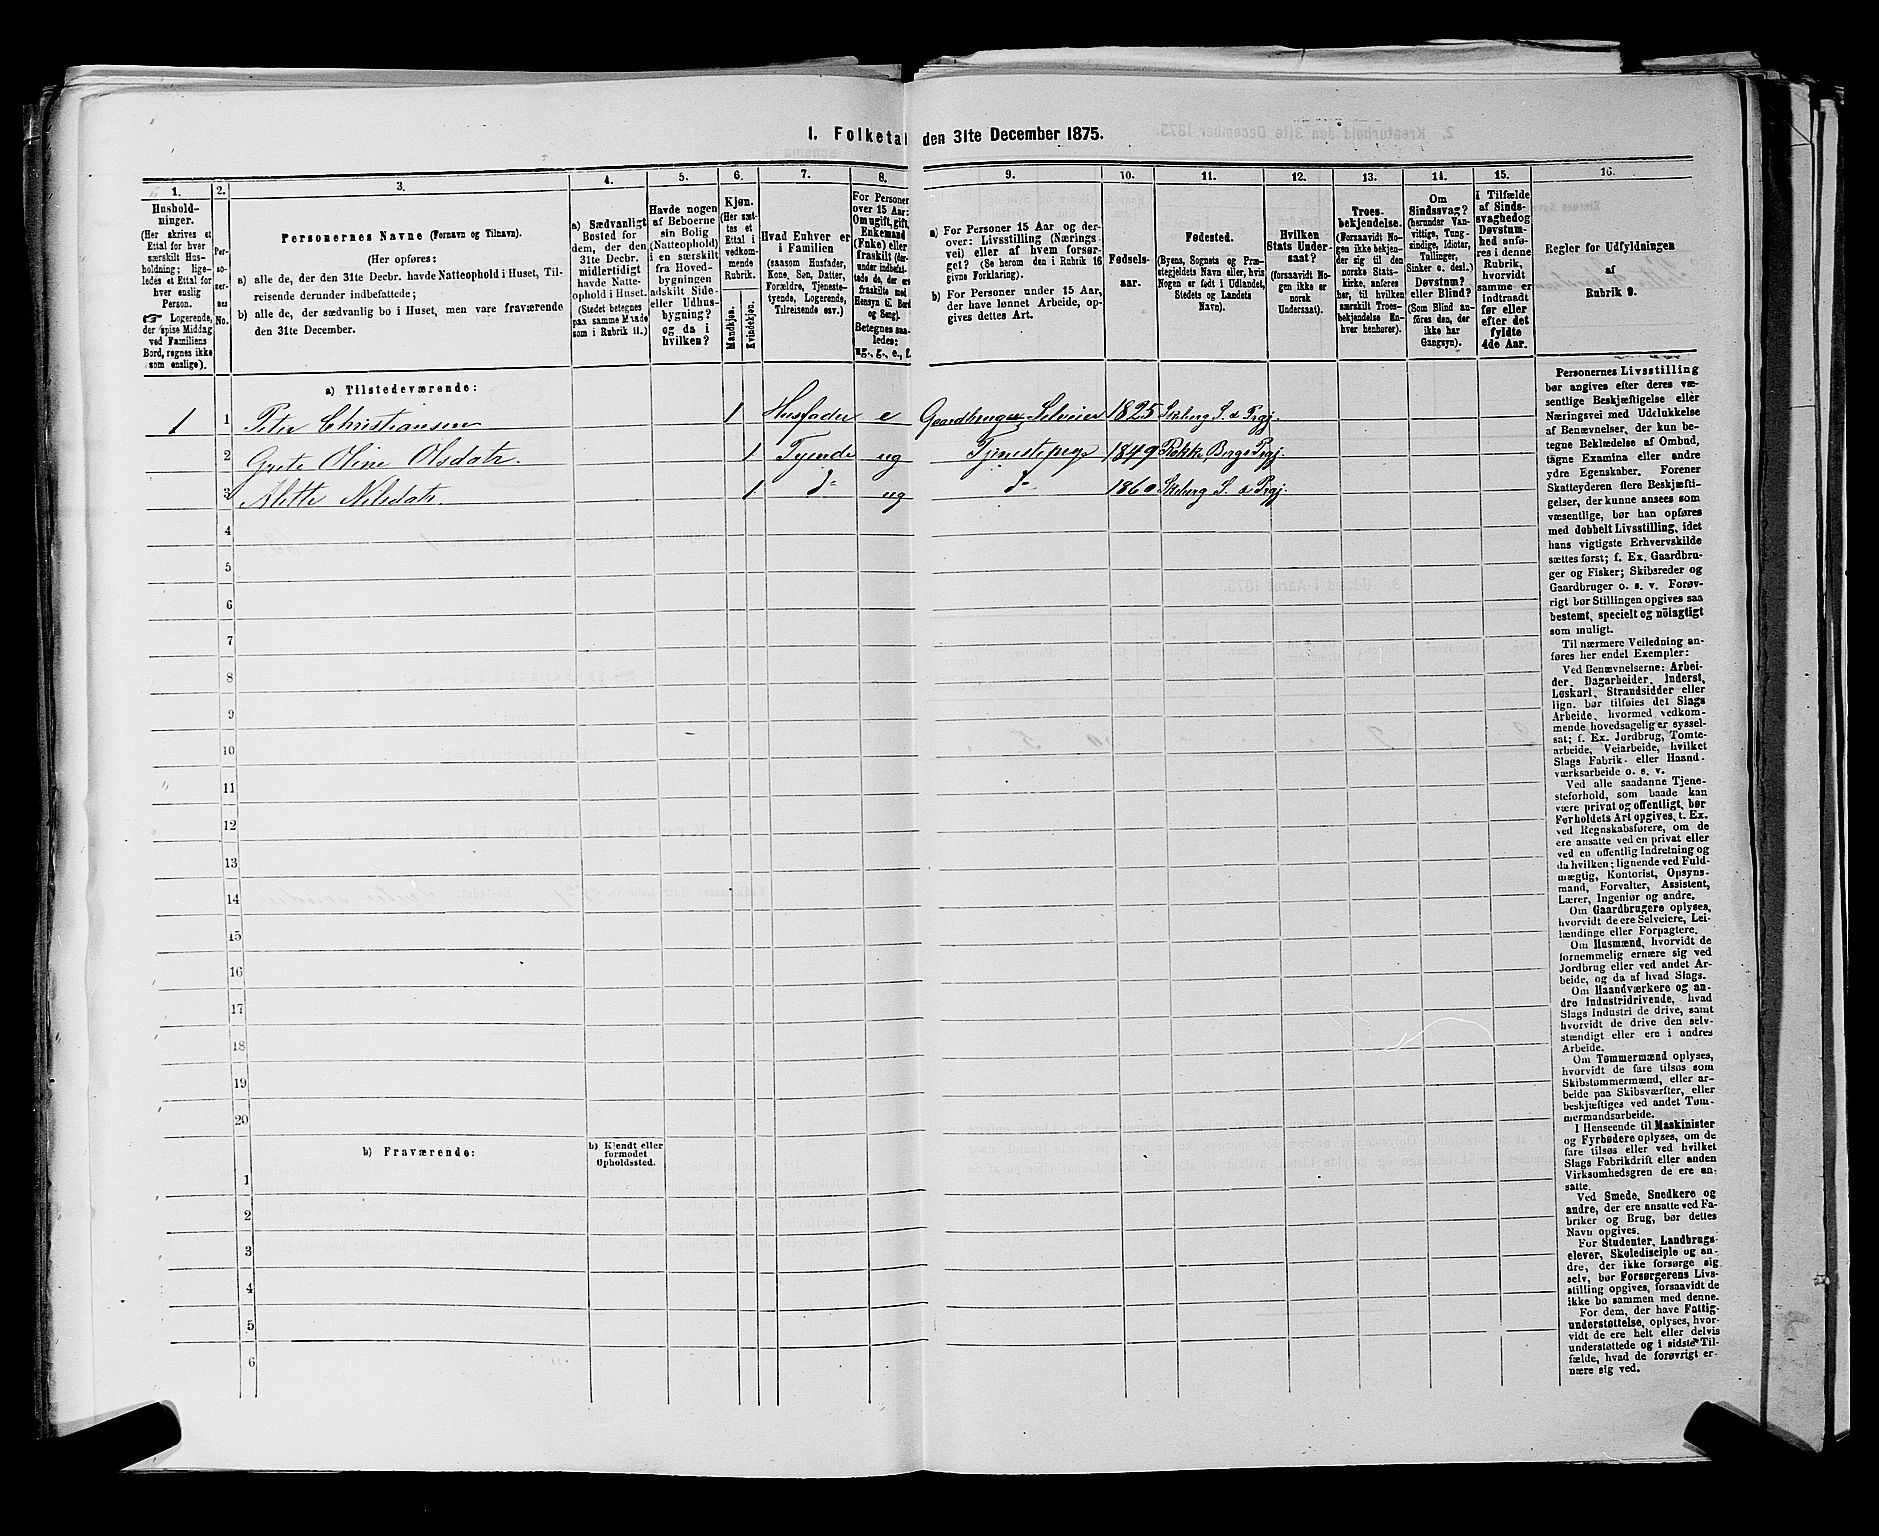 1. Folketal den 31te December 1875.
1. 2. 3. 4. 5. 6. 7. 8. 9. 10. 11. 12. 13. 14. 15. 16.
Husholdninger.
(Her skrives et
Ettal for hver
særskilt Husholdning; ligeledes
et Ettal for
hver enslig
Person.
☞ Logerende,
der spise Middag
ved Familiens
Bord, regnes ikke
som enslige).
Personernes No.
Personernes Navne (Fornavn og Tilnavn).
(Her opføres:
a) alle de, der den 31te Decbr. havde Natteophold i Huset, Tilreisende
derunder indbefattede;
b) alle de, der sædvanlig bo i Huset, men vare fraværende
den 31te December.
a) Sædvanligt
Bosted for
dem, der den
31te Decbr.
midlertidigt
havde Natteophold
i Huset.
(Stedet betegnes
paa samme Maade
som i Rubrik 11.)
Havde nogen
af Beboerne
sin Bolig
(Natteophold)
i en særskilt
fra Hovedbygningen
adskilt Side-
eller Udhusbygning?
og da i
hvilken?
Kjøn.
(Her sættes
et
Ettal i
vedkommende
Rubrik.
Mandkjøn.
Kvindekjøn.
Hvad Enhver er
i Familien
(saasom Husfader,
Kone, Søn, Datter,
Forældre, Tjenestetyende,
Logerende,
Tilreisende osv.)
For Personer
over 15 Aar:
Om ugift, gift,
Enkemand
(Enke) eller
fraskilt (derunder
indbefattede
de, der ere
fraskilte med
Hensyn til Bord
og Seng).
Betegnes saaledes:
ug., g., e., f.
a) For Personer 15 Aar og derover:
Livsstilling (Næringsvei)
eller af hvem forsørget?
(Se herom den i Rubrik 16
givne Forklaring).
b) For Personer under 15 Aar,
der have lønnet Arbeide, opgives
dettes Art.
Fødselsaar.
Fødested.
(Byens, Sognets og Præstegjeldets
Navn eller, hvis
Nogen er født i Udlandet,
Stedets og Landets
Navn).
Hvilken
Stats Undersaat?
(forsaavidt Nogen
ikke er
norsk
Undersaat).
Troesbekjendelse.
(Forsaavidt Nogen
ikke bekjender
sig til den
norske Statskirke,
anføres
her, til hvilken
særskilt Troesbekjendelse
Enhver
henhører).
Om
Sindssvag?
(herunder Vanvittige,
Tungsindige,
Idioter,
Tullinger,
Sinker o. desl.)
Døvstum?
eller Blind?
(Som Blind anføres
den, der
ikke har
Gangsyn).
I Tilfælde
af Sindssvaghed
og
Døvstumhed
anføres
i denne
Rubrik,
hvorvidt
samme er
indtraadt
før eller
efter det
fyldte
4de Aar.
Regler for Udfyldningen
af
Rubrik 9.
a) Tilstedeværende:
1 1 Peter Christiansen 1 Husfader e Gaardbruger Selveier 1825 Skeberg S. d Prgj.
2 Grete Oline Olsdatr. 1 Tyende ug Tjenestepige 1849 Rokke Bergs Prgj.
3 Aleth Nilsdatr. 1 do ug do 1860 Skeberg S. d Prgj.
4
5
6
7
8
9
10
11
12
13
14
15
16
17
18
19
20
b) Fraværende:
b) Kjendt eller
formodet
Opholdssted.
1
2
3
4
5
6
Personernes Livsstilling
bør angives efter deres væsentlige
Beskjæftigelse eller
Næringsvei med Udelukkelse
af Benævnelser, der kun betegne
Beklædelse af Ombud,
tagne Examina eller andre
ydre Egenskaber. Forener
Skatteyderen flere Beskjæftigelser,
der kunne ansees som
væsentlige, bør han opføres
med dobbelt Livsstilling, idet
hans vigtigste Erhvervskilde
sættes først; f. Ex. Gaardbruger
og Fisker; Skibsreder og
Gaardbruger o. s. v. Forøvrigt
bør Stillingen opgives saa
bestemt, specielt og nöiagtigt
som muligt.
Til nærmere Veiledning anføres
her endel Exempler:
Ved Benævnelserne: Arbeider,
Dagarbeider, Inderst,
Løskarl, Strandsidder eller
lign. bør tilføies det Slags
Arbeide, hvormed vedkommende
hovedsagelig er sysselsat;
f. Ex. Jordbrug, Tomtearbeide,
Veiarbeide, hvilket
Slags Fabrik- eller Haandværksarbeide
o. s. v.
Ved alle saadanne Tjenesteforhold,
som baade kan
være privat og offentligt, bør
Forholdets Art opgives, t. Ex.
ved Regnskabsførere, om de
ere ansatte ved en privat eller
ved en offentlig Indretning og
da hvilken; lignende ved Fuldmægtig,
Kontorist, Opsynsmand,
Forvalter, Assistent,
Lærer, Ingeniør og andre.
Om Gaardbrugere oplyses,
hvorvidt de ere Selveiere, Leilændinge
eller Forpagtere.
Om Husmænd, hvorvidt de
fornemmelig ernære sig ved
Jordbrug eller ved andet Arbeide,
og da af hvad Slags.
Om Haandværkere og andre
Industridrivende, hvad
Slags Industri de drive, samt
hvorvidt de drive den selvstændigt
eller ere i andres
Arbeide.
Om Tømmermænd oplyses,
hvorvidt de fare tilsøs som
Skibstømmermænd, eller arbeide
paa Skibsværfter, eller
beskjæftiges ved andet Tømmermandsarbeide.
I Henseende til Maskinister
og Fyrbødere oplyses, om de
fare tilsøs eller ved hvilket
Slags Fabrikdrift eller anden
Virksomhedsgren de ere ansatte.
Ved Smede, Snedkere og
andre, der ere ansatte ved Fabriker
og Brug, bør dettes
Navn opgives.
For Studenter, Landbrugselever,
Skoledisciple og andre,
der ikke forsørge sig
selv, bør Forsørgerens Livsstilling
opgives, forsaavidt de
ikke bo sammen med denne.
For dem, der have Fattigunderstøttelse,
oplyses, hvorvidt
de ere helt eller delvis
understøttede og i sidste Tilfælde,
hvad de forøvrigt ernære
sig ved.